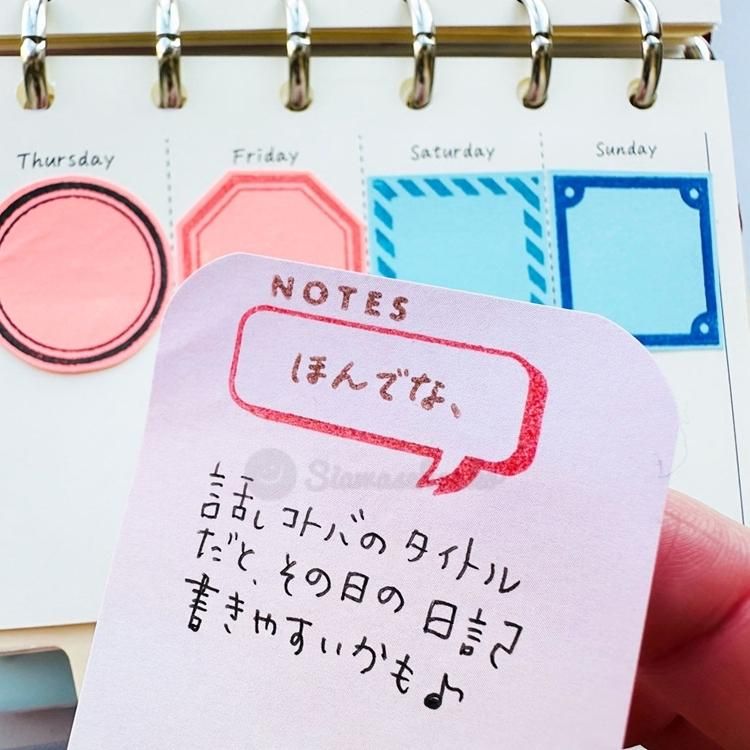 Thursday
Friday
Saturday
Sunday
NOTES
ほんでな、
話しコトバの タイトル
だと、その日の 日記
書きやすいかも♪